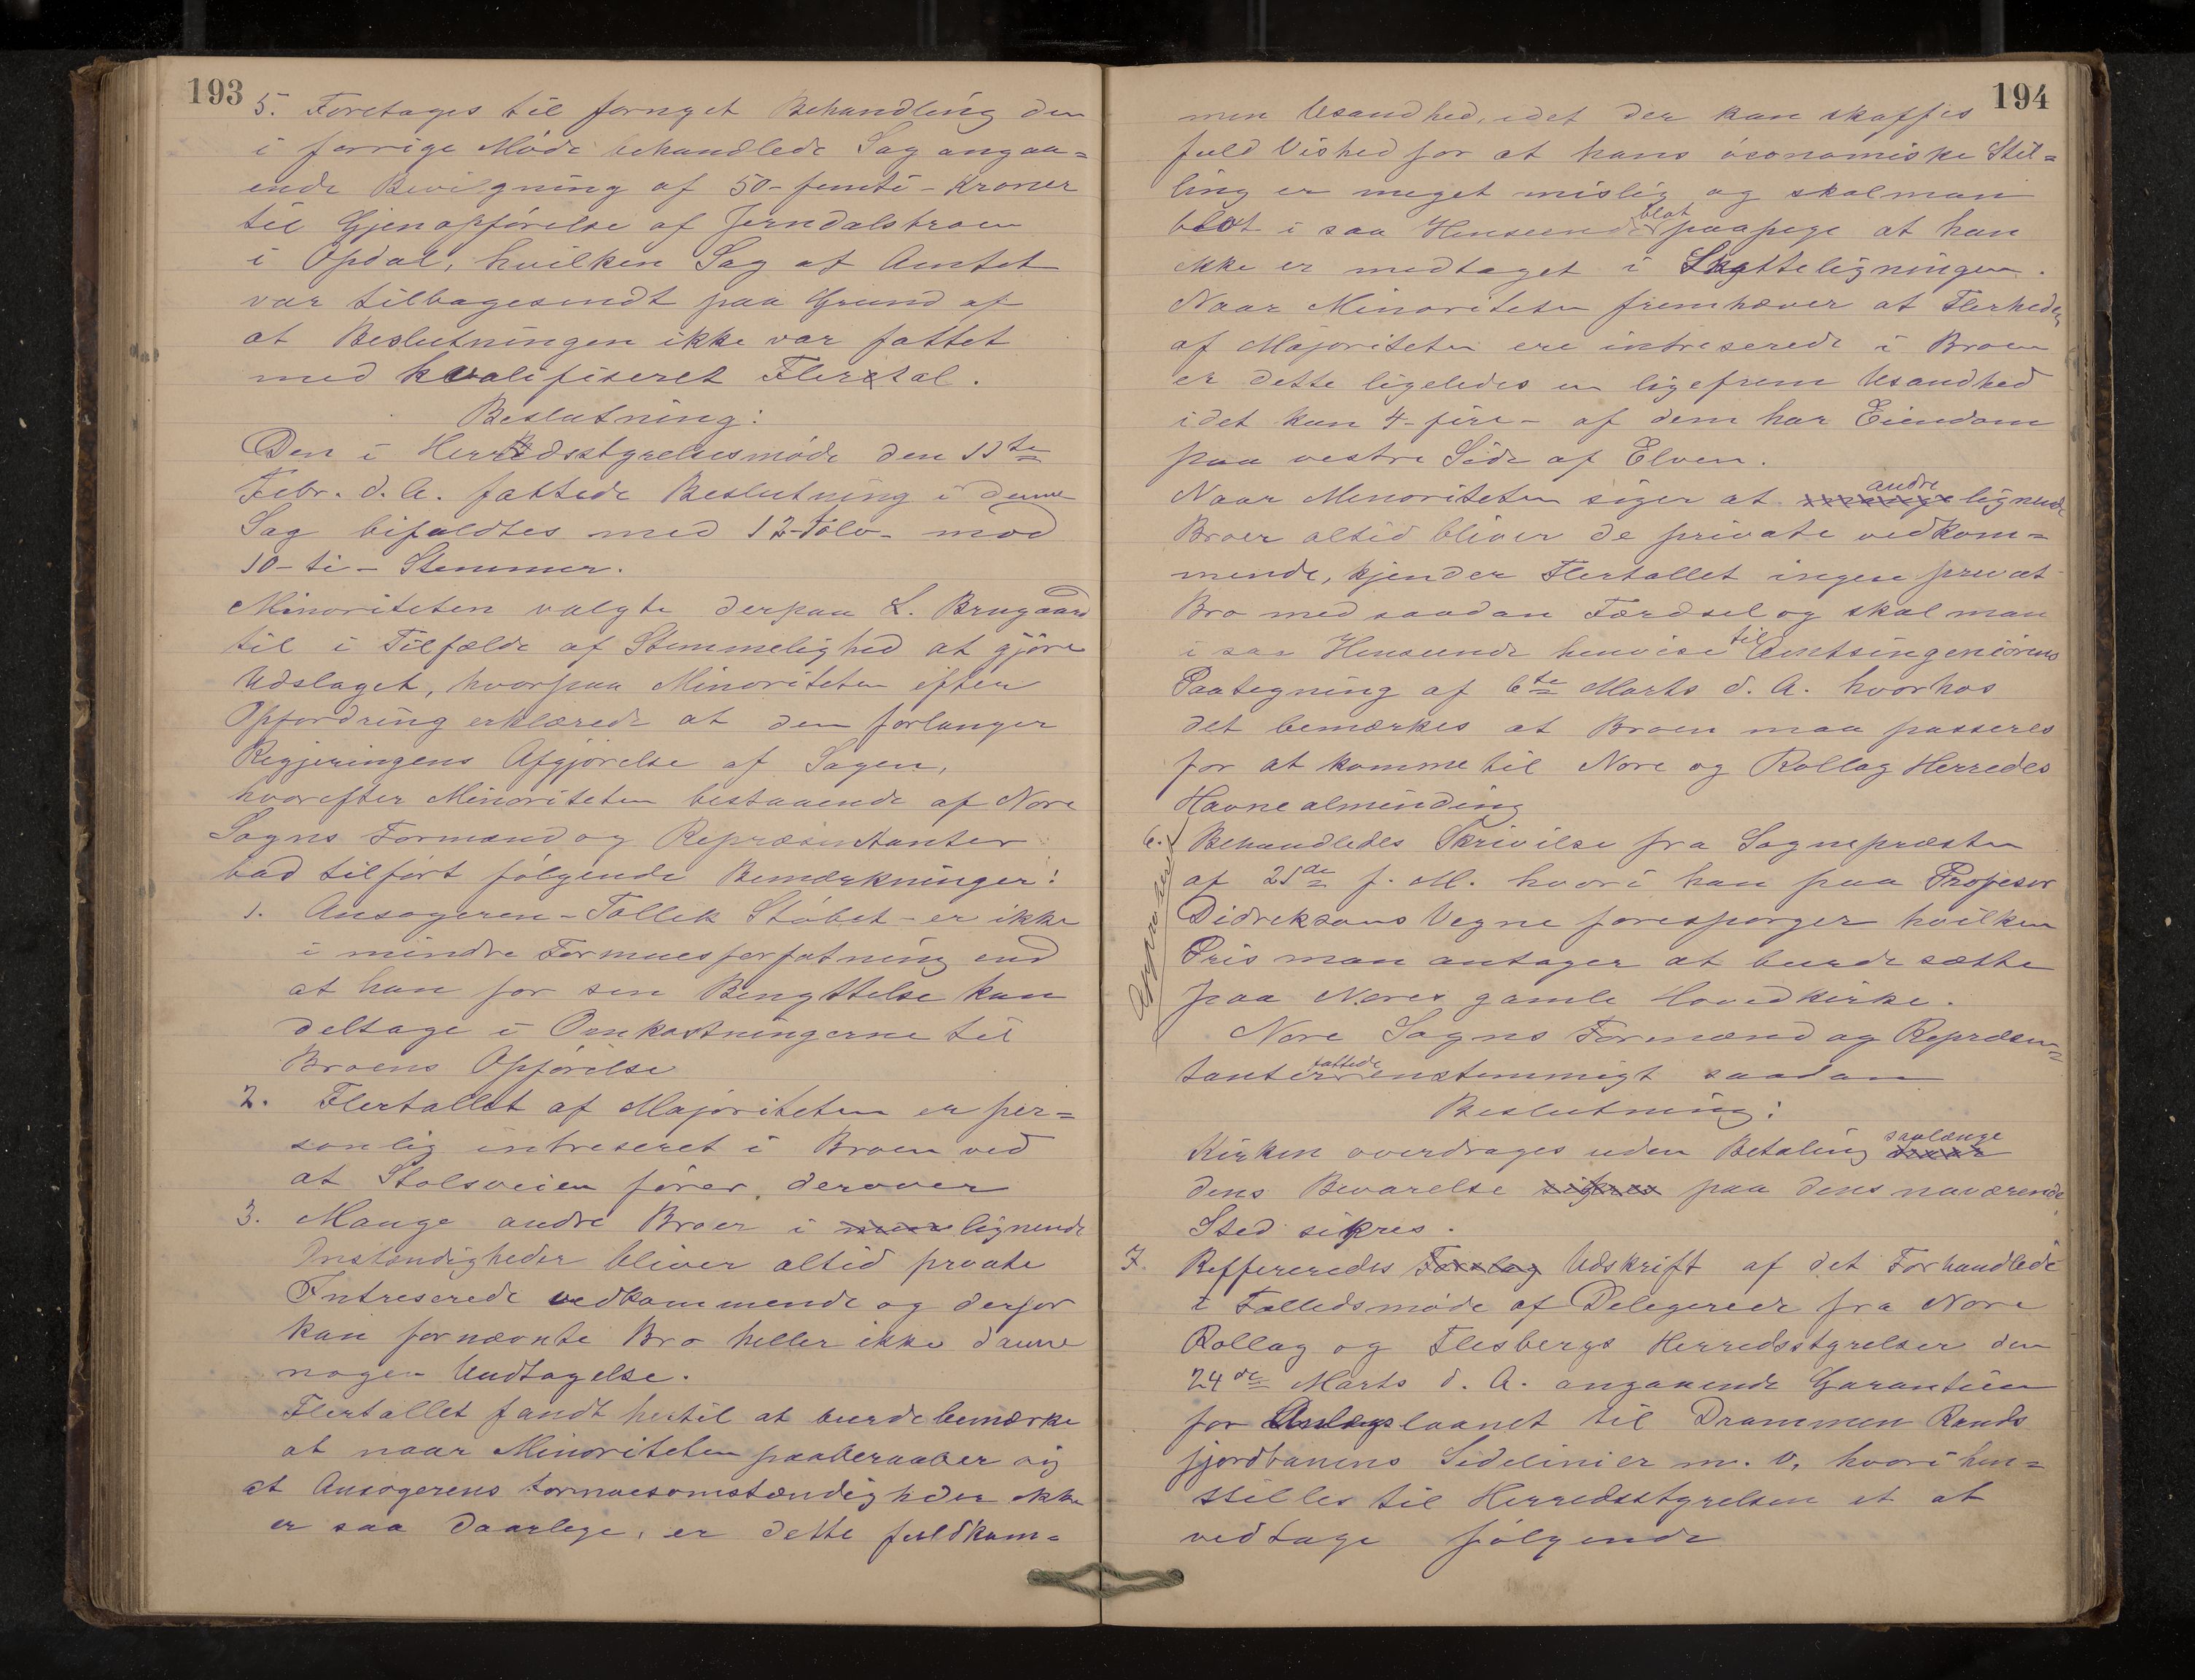 193
5. Foretages til fornyet Behandling den
i forrige Møde behandlede Sag angaa=
ende Bevilgning af 50-femti-Kroner
til Gjenopførelse af Jerndalsbroen
i Opdal, hvilken Sag af Amtet
var tilbagesendt paa Grund af
at Beslutningen ikke var fattet
med kvalifiseret Flertal.
Beslutning:
Den i Herredsstyrelsesmøde den 11te
Febr. d. A. fattede Beslutning i denne
Sag bifaldtes med 12-tolv- mod
10-ti-Stemmer.
Minoriteten valgte derpaa L. Brugaard
til i Tilfælde af Stemmelighed at gjøre
Udslaget, hvorpaa Minoriteten efter
Opfordring erklærede at den forlanger
Regjeringens Afgjørelse af Sagen,
hvorefter Minoriteten bestaaende af Nore
Sogns Formænd og Repræsentanter
bad tilført følgende Bemærkninger:
1. Ansøgeren-Tollek Støbet-er ikke
i mindre Formuesforfatning end
at han for sin Benyttelse kan
deltage i Omkostningerne til
Broens Opførelse
2. Flertallet af Majoriteten er per=
sonlig intreseret i Broen ved
at Stolsveien fører derover
3. Mange andre Broer i lignende
Omstændigheder bliver altid private
Intreserede vedkommende og derfor
kan fornævnte Bro heller ikke danne
nogen Undtagelse.
Flertallet fandt hertil at burde bemærke
at naar Minoriteten paaberaaber sig
at Ansøgerens Formuesomstændigheder ikke
er saa daarlige, er dette fuldkom=
194
men Usandhed, idet der kan skaffes
fuld Vished for at hans øconomiske Stil=
ling er meget mislig og skal man
blot i saa Henseende blot paapege at han
ikke er medtaget i Skatteligningen.
Naar Minoriteten fremhæver at Flerheden
af Majoriteten ere intreserede i Broen
er dette ligeledes en ligefrem Usandhed
idet kun 4-fire- af dem har Eiendom
paa vestre Side af Elven.
Naar Minoriteten siger at andre lignende
Broer altid bliver de private vedkom=
mende, kjender Flertallet ingen privat
Bro med saadan Færdsel og skal man
i saa Henseende henvise til Amtsingeniørens
Paategning af 6te Marts d. A. hvorhos
det bemærkes at Broen maa passeres
for at komme til Nore og Rollag Herredes
Havnealminding
6. Behandledes Skrivelse fra Sognepræsten
af 21de f. M. hvori han paa Profesor
Didreksons Vegne forespørger hvilken
Pris man antager at burde sætte
paa Nores gamle Hovedkirke.
Nore Sogns Formænd og Repræsen=
tanter fattede enstemmigt saadan
Beslutning:
Kirken overdrages uden Betaling saalænge
dens Bevarelse sikres paa dens naværende
Sted sikres.
7. Reffereredes Forslag Udskrift af det Forhandlede
i Fælledsmøde af Delegerede fra Nore
Rollag og Flesbergs Herredsstyrelser den
24de Marts d. A. angaaende Garantien
for Anlægslaanet til Drammen Rands
fjordbanens Sidelinier m. v. hvori hen=
stilles til Herredsstyrelsen et at
vedtage følgende